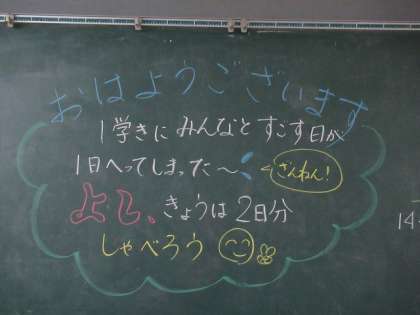 おはようございます
1学きにみんなとすごす日が
1日へってしまった〜
ざんねん!
よし、きょうは2日分
しゃべろう
14